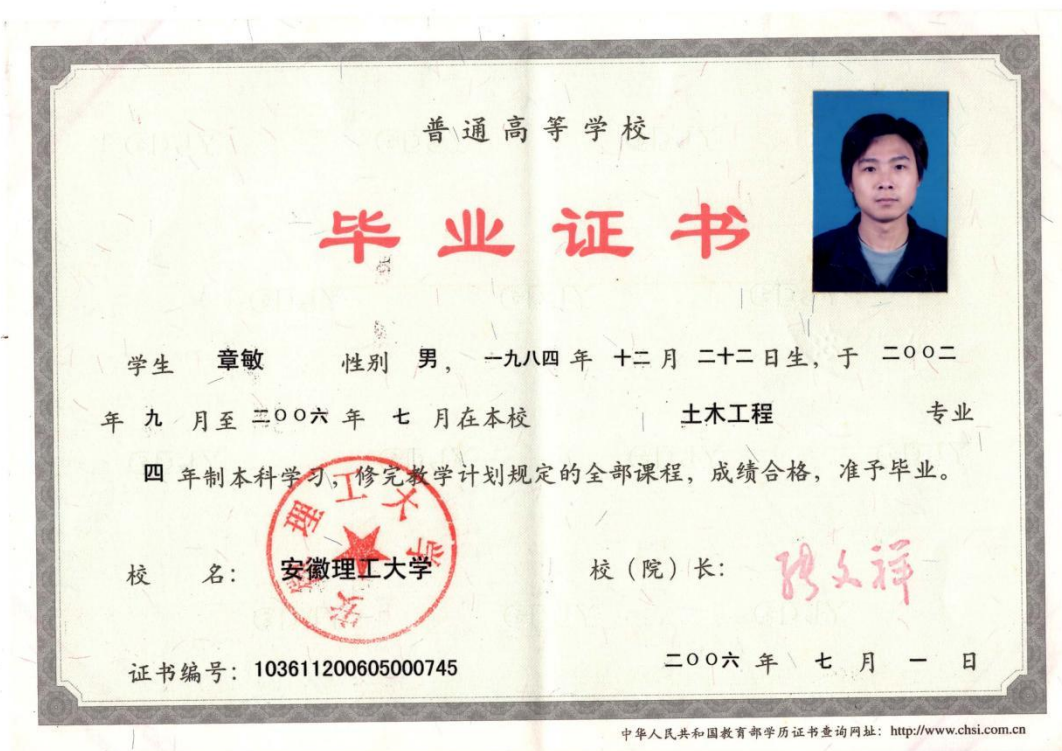 普通高等学校
毕业证书
学生 章敏 性别 男，一九八四年 十二月 二十二日生，于 二〇〇二
年 九 月至 二〇〇六 年 七 月在本校 土木工程 专业
四 年制本科学习，修完教学计划规定的全部课程，成绩合格，准予毕业。
安徽理工大学
校 名：安徽理工大学 校（院）长：张文祥
证书编号：103611200605000745 二〇〇六 年 七 月 一 日
中华人民共和国教育部学历证书查询网址：http://www.chsi.com.cn